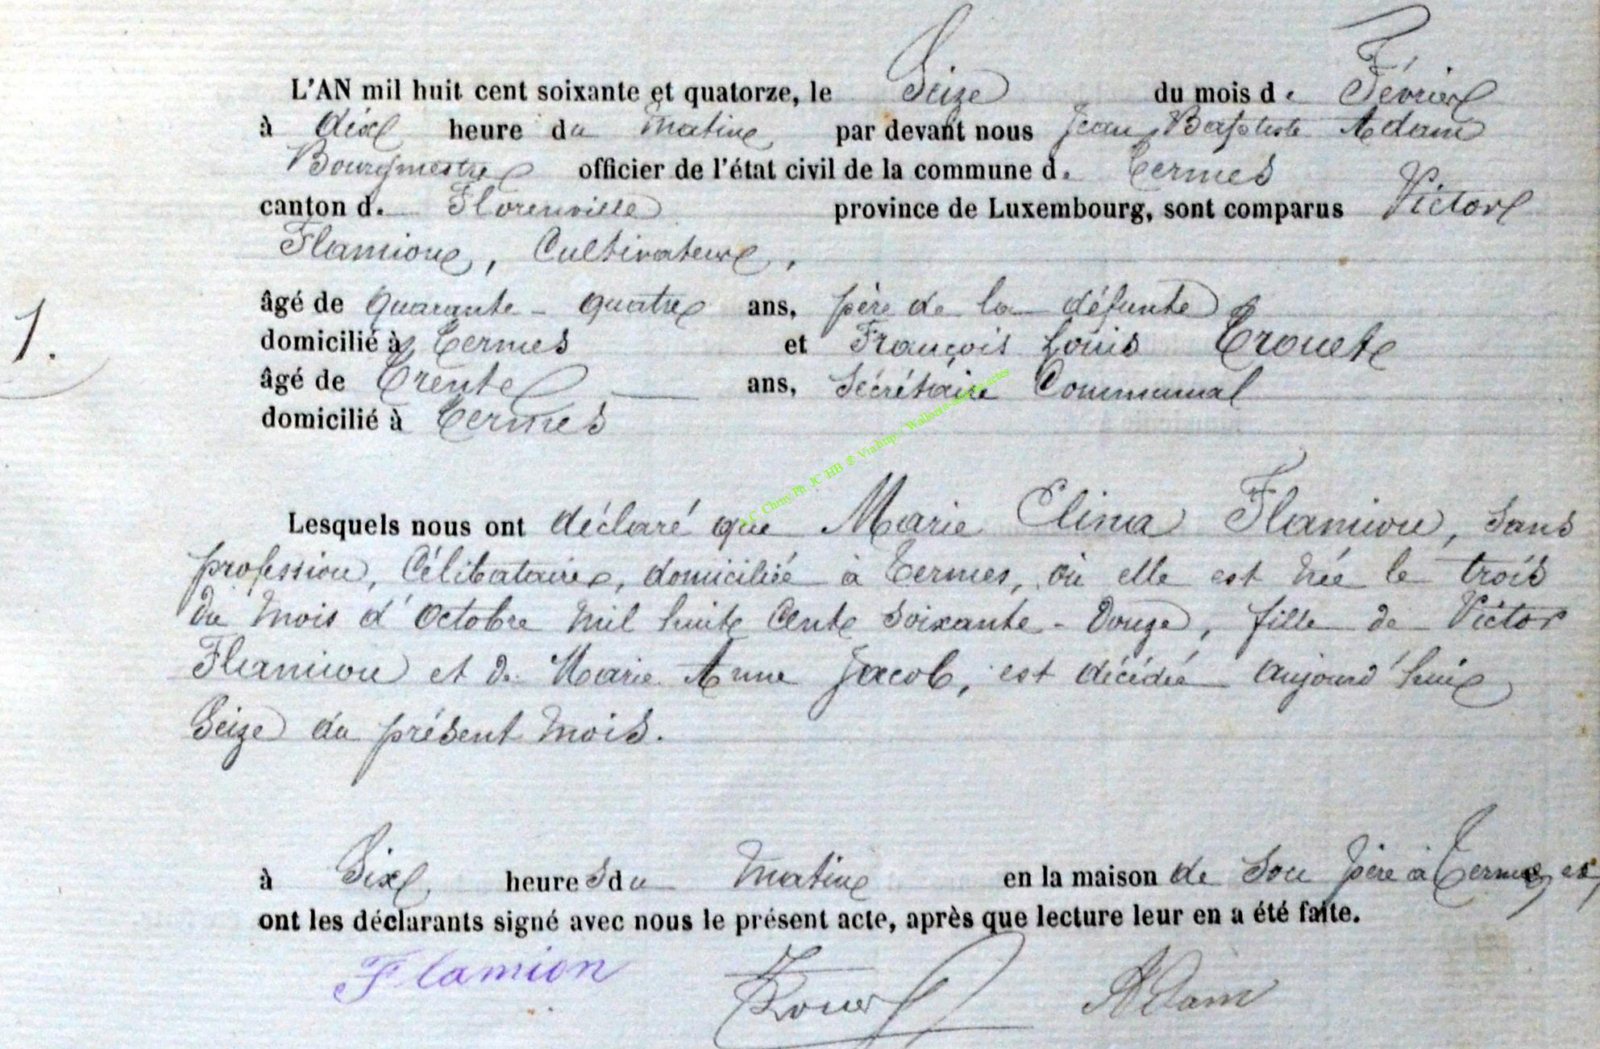 L'AN mil huit cent soixante et quatorze, le Seize du mois de Février
à dix heure du matin par devant nous Jean Baptiste Adam
Bourgmestre officier de l'état civil de la commune de Termes
canton de Florenville province de Luxembourg, sont comparus Victor
Flamion, Cultivateur,
âgé de quarante-quatre ans, père de la défunte
domicilié à Termes et François Louis
1.
âgé de Trente ans, Secrétaire Communal
domicilié à Termes
Lesquels nous ont déclaré que Marie Elina Flamion, sans
profession, Célibataire, domiciliée à Termes, où elle est née le trois
du mois d'Octobre mil huit Cent soixante-Douze, fille de Victor
Flamion et de Marie Anne Jacob, est décédée aujourd'hui
Seize du présent mois.
à Six heures du matin en la maison de son père à Termes, et
ont les déclarants signé avec nous le présent acte, après que lecture leur en a été faite.
Flamion Adam